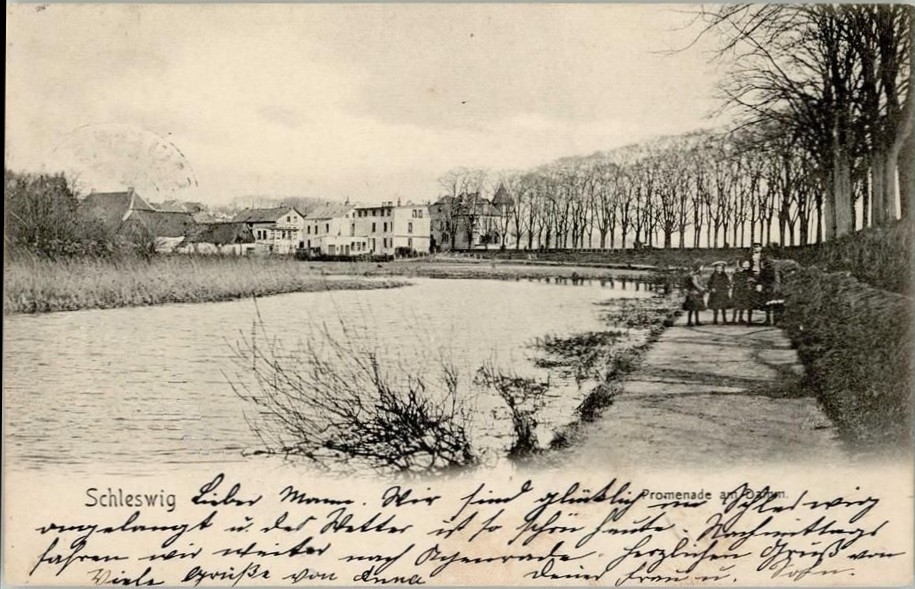 Schleswig
Promenade am Damm.
Lieber Mann. Wir sind glücklich in Schleswig
angelangt u. das Wetter ist so schön heute. Nachmittags
fahren wir weiter nach. Herzlichen Gruß von
Viele Grüße von Anna
Deiner Frau u. Sohn.